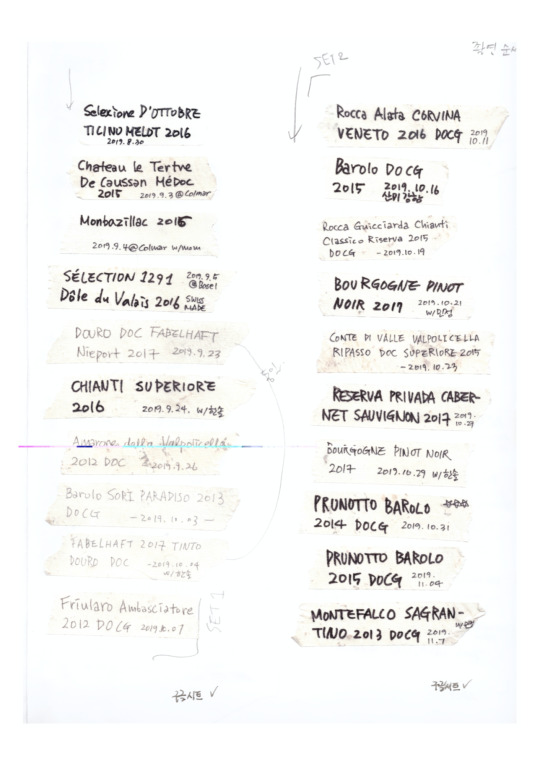 SET 2
Selexione D'OTTOBRE
TICINO MELOT 2016
2019.8.30
Chateau le Tertre
De Caussan MÉDOC
2015 2019.9.3 @Colmar
Monbazillac 2015
2019.9.4 @Colmar w/mom
SÉLECTION 1291 2019.9.5
@Basel
Dôle du Valais 2016 SWISS
MADE
DOURO DOC FABELHAFT
Nieport 2017 2019.9.23
CHIANTI SUPERIORE
2016 2019.9.24. w/한솔
Amarone della Valpolicella
2012 DOC 2019.9.26
Barulo SORI PARADISO 2013
DOCG -2019.10.03-
FABELHAFT 2017 TINTO
DOURO DOC -2019.10.04
w/한솔
Friularo Ambasciatore
2012 DOCG 2019.10.07
SET 1
구글시트 ✓
Rocca Alata CORVINA
VENETO 2016 DOCG 2019
10.11
Barolo DOCG
2015 2019.10.16
Rocca Guicciarda Chianti
Classico Riserva 2015
DOCG -2019.10.19
BOURGOGNE PINOT
NOIR 2017 2019.10.21
CONTE DI VALLE VALPOLICELLA
RIPASSO DOC SUPERIORE 2015
-2019.10.23
RESERVA PRIVADA CABER-
NET SAUVIGNON 2017 2019.
10.27
BOURGOGNE PINOT NOIR
2017 2019.10.29 w/한솔
PRUNOTTO BAROLO
2014 DOCG 2019.10.31
PRUNOTTO BAROLO
2015 DOCG 2019.
11.04
MONTEFALCO SAGRAN-
TINO 2013 DOCG 2019.
11.7
구글시트 ✓